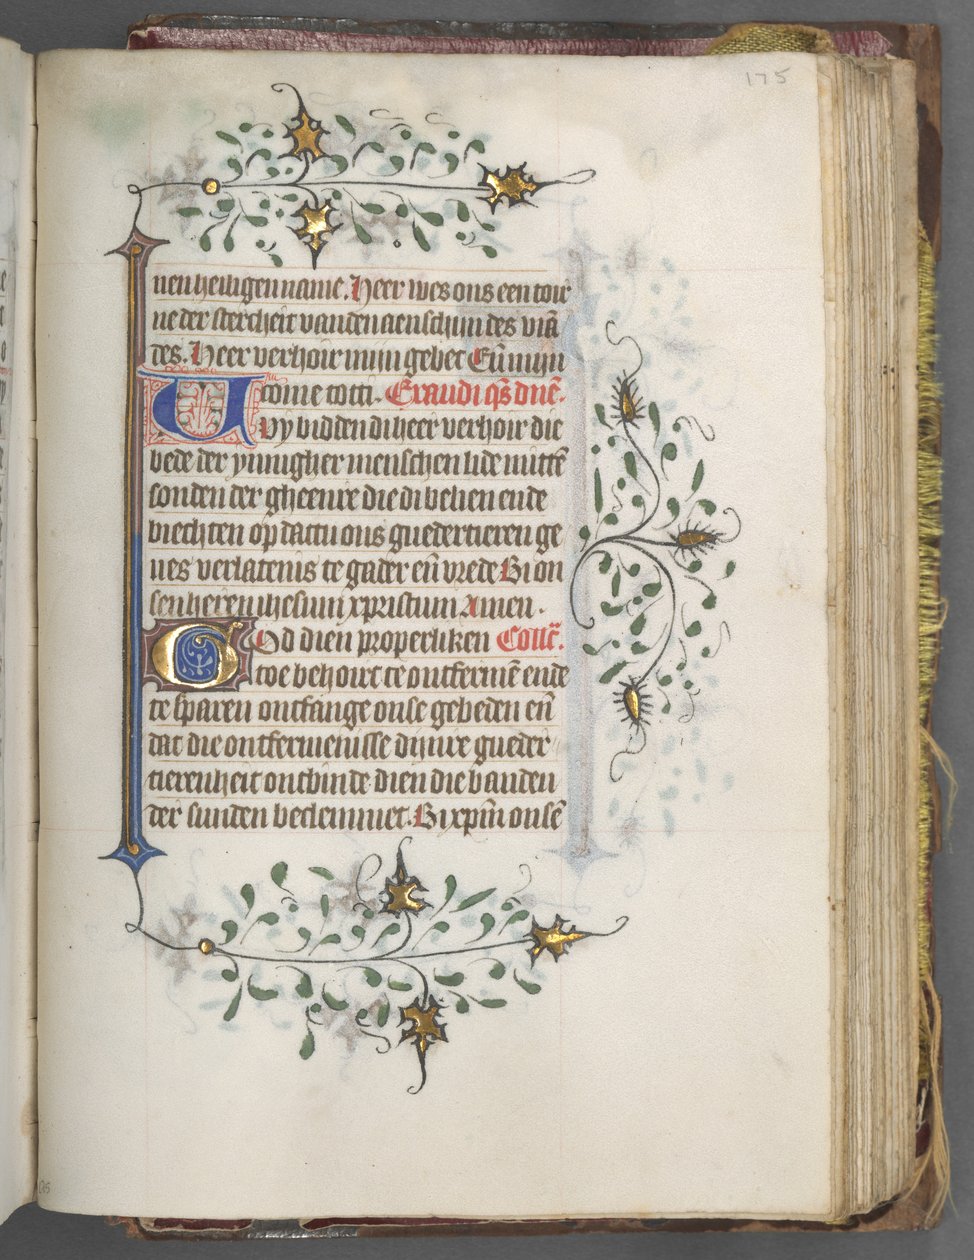 175
nen heiligen name. Heer wes ons een tor
ne der stercheit vanden aenschijn des viā
des. Heer verhoir mijn gebet Eñ mijn
come tot ti. Exaudi qs̄ dn̄e.
Wy bidden di heer verhoir die
bede der ynnigher menschen ende
sonden der gheenre die di belien ende
biechten op dattu ons guedertieren ge
nes verlatenis te gader eñ vrede Bi on
sen heren ihesum xpristum Amen.
God dien properliken Coll̄.
toe behoirt te ontfermē ende
te sparen ontfange onse gebeden eñ
dat die ontfermenisse dijnre gueder
tierenheit ontbinde dien die banden
der sunden beclemmet. Bi xp̄m onsē